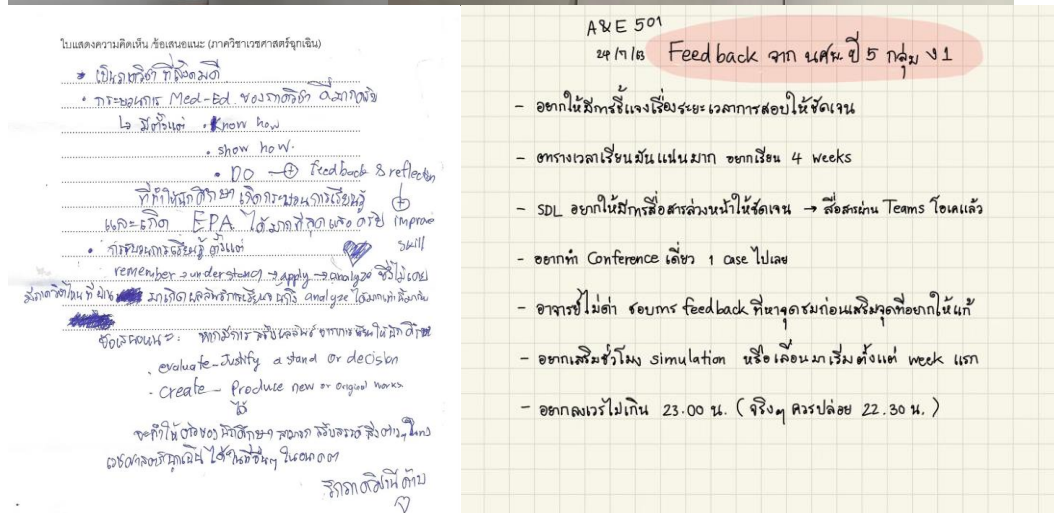 ใบแสดงความคิดเห็น /ข้อเสนอแนะ (ภาควิชาเวชศาสตร์ฉุกเฉิน)
* เป็นภาควิชาที่สังคมดี
• กระบวนการ Med-Ed. ของภาควิชา ดีมากครับ
↳ มีตั้งแต่ • Know how
• show how.
• DO → ⊕ Feedback & reflection
ที่ทำให้นักศึกษา เกิดกระบวนการเรียนรู้ ⊕
และเกิด EPA ได้มากที่สุดแล้วครับ improve
skill
• กระบวนการเรียนรู้ ตั้งแต่
remember → understand → apply → analyze ซึ่งไม่เคย
มีภาควิชาไหนที่ มาเกิดผลลัพธ์การเรียนรู้ analyze ได้มากเท่านี้
ข้อเสนอแนะ: หากมีการ ให้นักศึกษา
• evaluate - Justify a stand or decision
• create - Produce new or original works
ได้
จะทำให้ นักศึกษา สามารถ สิ่งต่างๆ
เวชศาสตร์ฉุกเฉิน ได้ ในอนาคต
รักภาควิชานี้ครับ
A&E 501
Feedback จาก นศพ. ปี 5 กลุ่ม ง1
- อยากให้มีการชี้แจงเรื่องระยะเวลาการสอบให้ชัดเจน
- ตารางเวลาเรียนมันแน่นมาก อยากเรียน 4 weeks
- SDL อยากให้มีการสื่อสารล่วงหน้าให้ชัดเจน → สื่อสารผ่าน Teams โอเคแล้ว
- อยากทำ Conference เดี่ยว 1 case ไปเลย
- อาจารย์ไม่ด่า ชอบการ feedback ที่หาจุดชมก่อนเสริมจุดที่อยากให้แก้
- อยากเสริมชั่วโมง simulation หรือเลื่อนมาเริ่มตั้งแต่ week แรก
- อยากลงเวรไม่เกิน 23.00 น. (จริงๆ ควรปล่อย 22.30 น.)